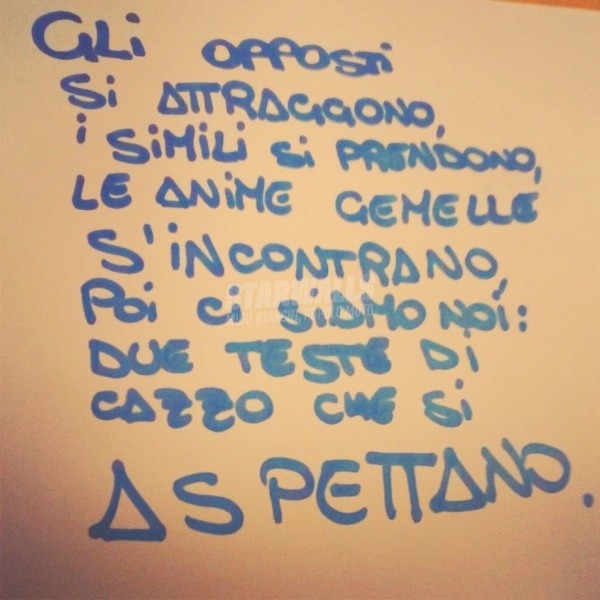 GLi OPPOSTi
Si ATTRAGGONO,
i SiMiLi Si PRENDONO,
LE ANiME GEMELLE
S'iNCONTRANO,
Poi Ci SiAMO NOi:
DUE TESTE Di
CAZZO CHE Si
ASPETTANO.
STARWALLS
MURI BIANCHI POPOLO MUTO